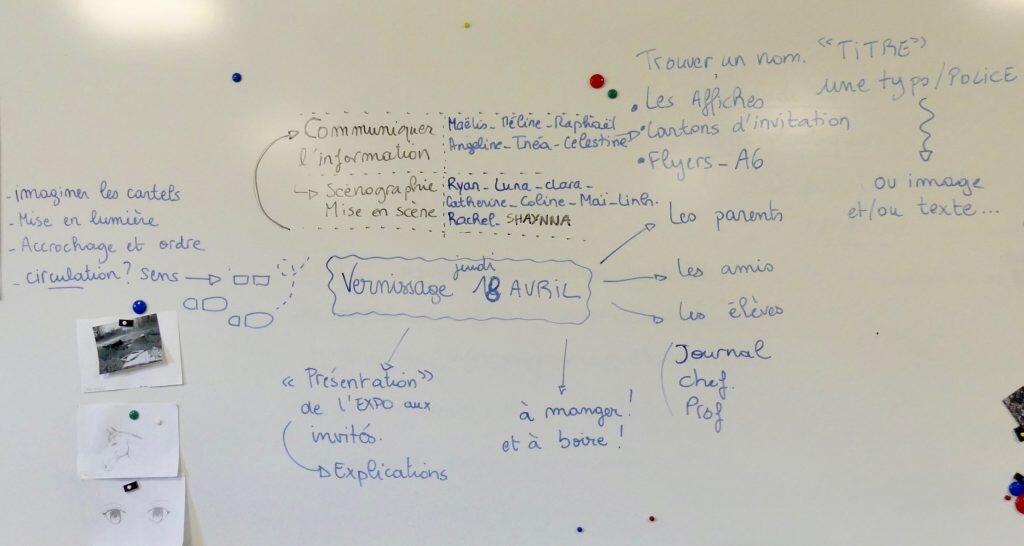 Trouver un nom. "TITRE"
une typo/POLICE
• Les Affiches
• Cartons d'invitation
• Flyers - A6
ou image
et/ou texte...
Communiquer
l'information
Maëlis - Méline - Raphaël
Angeline - Théa - Célestine
Scénographie
Mise en scène
Ryan - Luna - clara -
Catherine - Coline - Maï-Linh.
Rachel - SHAYNNA
- imaginer les cartels
- Mise en lumière
- Accrochage et ordre
- circulation ? sens
Vernissage jeudi 18 AVRIL
Les parents
Les amis
Les élèves
Journal
chef.
Prof
« Présentation »
de l'EXPO aux
invités.
Explications
à manger !
et à boire !